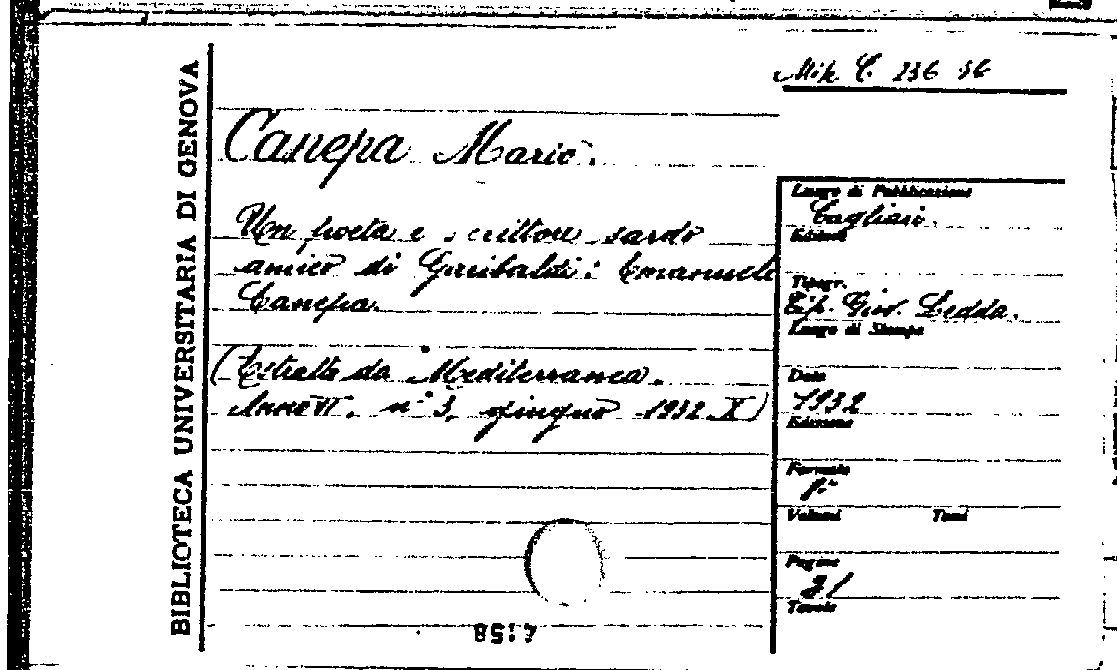 BIBLIOTECA UNIVERSITARIA DI GENOVA
Canepa Mario.
Un poeta e scrittore sardo
amico di Garibaldi: Emanuele
Canepa.
(Estratto da Mediterranea.
Anno VI. n° 3, giugno 1932 X)
Luogo di Pubblicazione
Cagliari.
Editori
Tipogr.
Tip. Giov. Ledda.
Luogo di Stampa
Data
1932
Edizione
Formato
Volumi Tomi
Pagine
21
Tavole